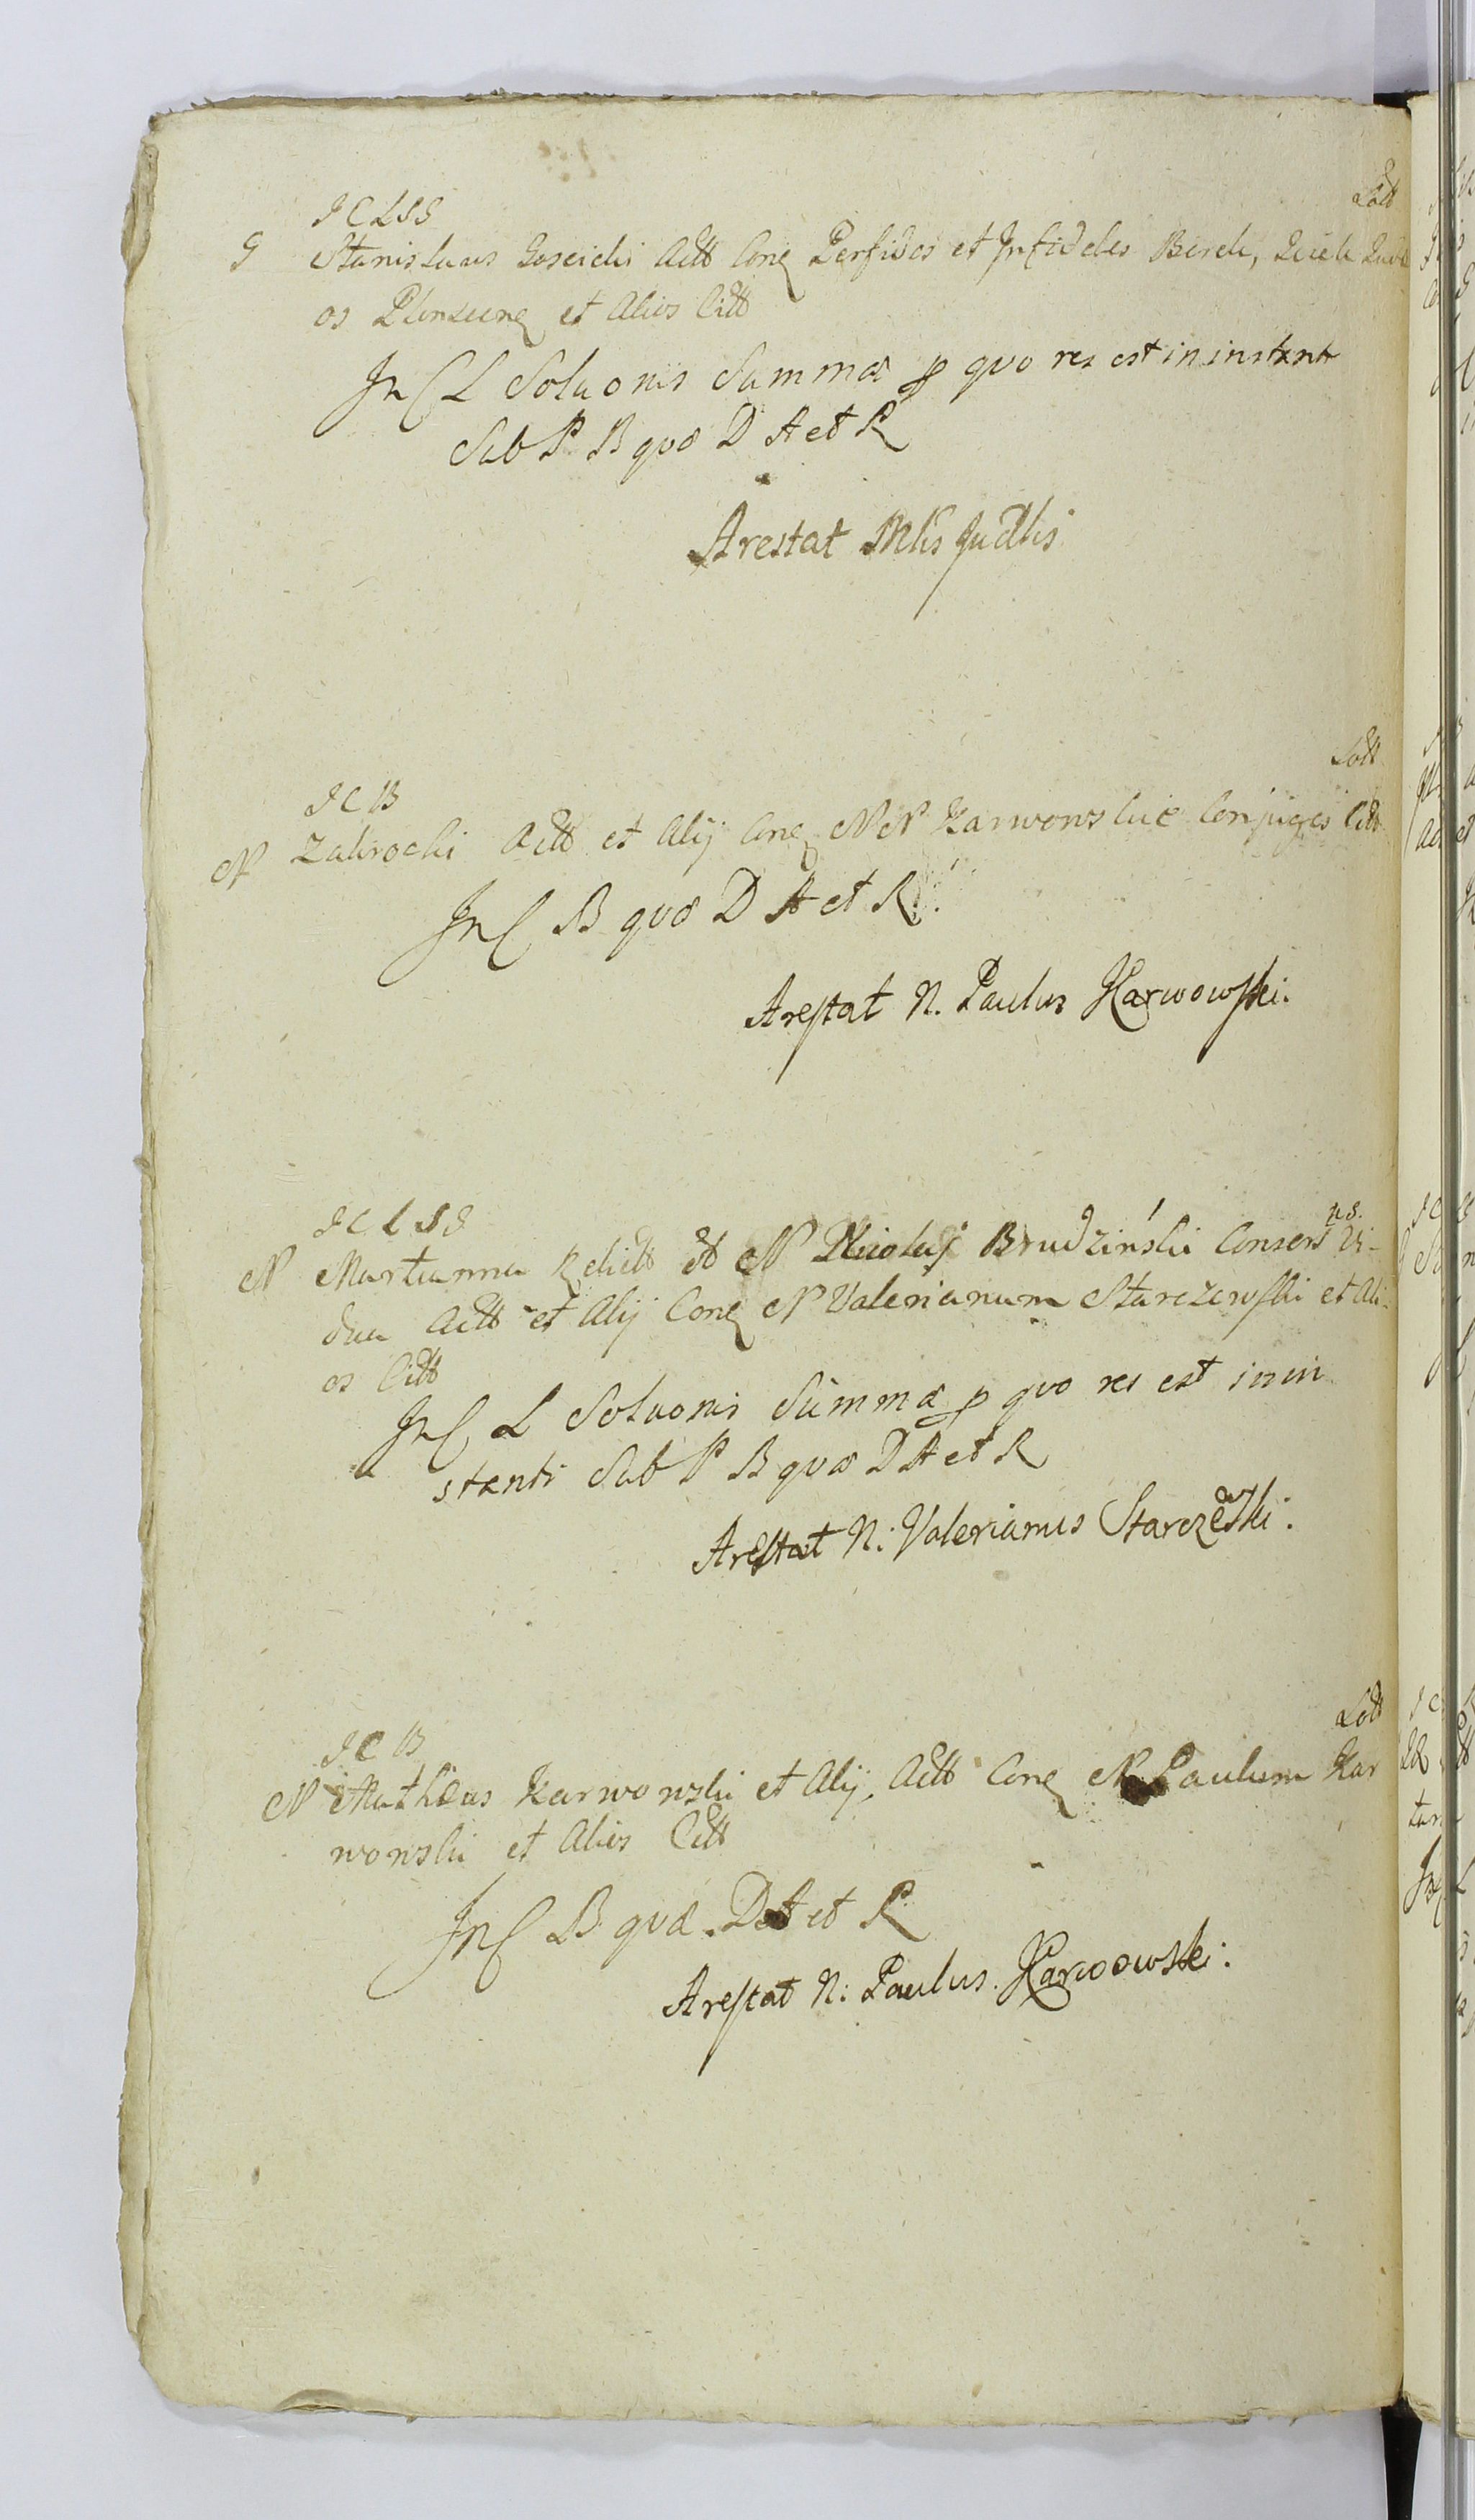 Lött
J C L S S
G Stanislaus Goscicki Actt Cong Perfidos et Infideles Berek, Zud
os Plonscens et Alios Citt
In C L Soluonis Summæ p quo res est in instanti
Sub P B quæ D A et R
Arestat Mlis Judlis
Lott
J C B
N Zakrocki Actt et Alij Cong NN Karwowskie Conjuges Citt
In C B quæ D A et R
Arestat N. Paulus Karwowski.
n s.
J C L S S
N Martianna Relictt N Nicolaj Brudzinski Consors Vi-
dua Actt et Alij Cong N Valerianum Starczewski et Ali-
os Citt
In C L Soluonis Summæ p quo res est in in
stanti Sub P B quæ D A et R
Arestat N: Valerianus Starczewski.
Lott
J C B
N Mathæus Karwowski et Alij Actt Cong N Paulum Kar
wowski et Alios Citt
In C B quæ D A et R
Arestat N: Paulus Karwowski.